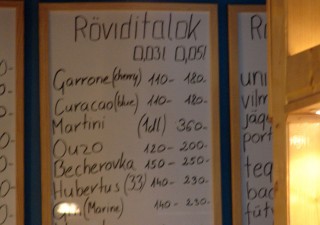 Röviditalok
0,03l 0,05l
Garrone (cherry) 110- 180-
Curacao (blue) 110- 180-
Martini (1dl) 360-
Ouzo 120- 200-
Becherovka 150- 250-
Hubertus (33) 140- 230-
Gin (Marine) 140- 230-
R
uni
vilm
jäge
port
teq
bac
füt